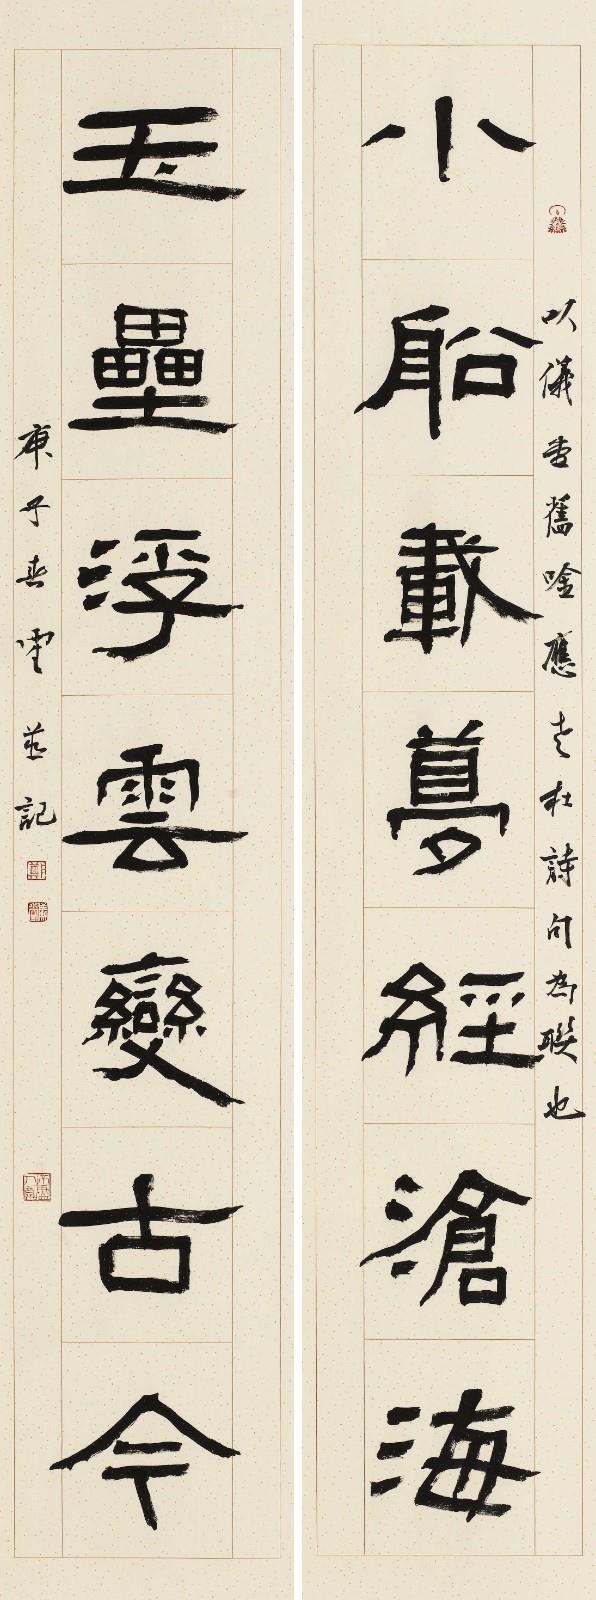 小船載夢經滄海
以儀舊唫應老杜詩句為聯也
玉壘浮雲變古今
庚子春記